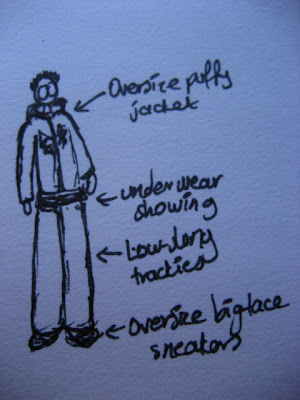 Oversize puffy
jacket
underwear
showing
Low-slung
trackies
Oversize big lace
sneakers